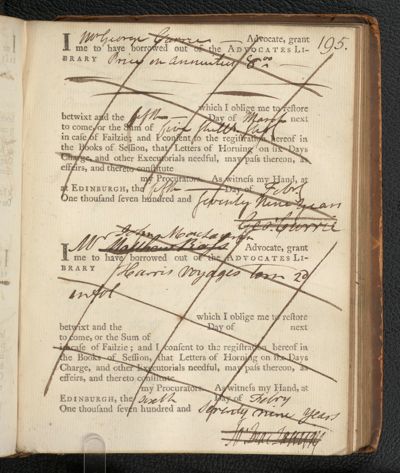 195.
I Mr George Currie Advocate, grant
me to have borrowed out of the ADVOCATES LI-
BRARY Price on Annuities 8vo
which I oblige me to restore
betwixt and the fifth Day of March next
to come, or the Sum of five shill: Ster:
in case of Failzie; and I consent to the registration hereof in
the Books of Session, that Letters of Horning on six Days
Charge, and other Executorials needful, may pass thereon, as
effeirs, and thereto constitute
my Procurators. As witness my Hand, at
at EDINBURGH, the fifth Day of Febry
One thousand seven hundred and seventy Nine years
Geo: Currie
I Mr Advocate, grant
me to have borrowed out of the ADVOCATES LI-
BRARY Harris voyages tom 2d
in fol
which I oblige me to restore
betwixt and the Day of next
to come, or the Sum of
in case of Failzie; and I consent to the registration hereof in
the Books of Session, that Letters of Horning on six Days
Charge, and other Executorials needful, may pass thereon, as
effeirs, and thereto constitute
my Procurators. As witness my Hand, at
EDINBURGH, the sixth Day of Febry
One thousand seven hundred and seventy nine years